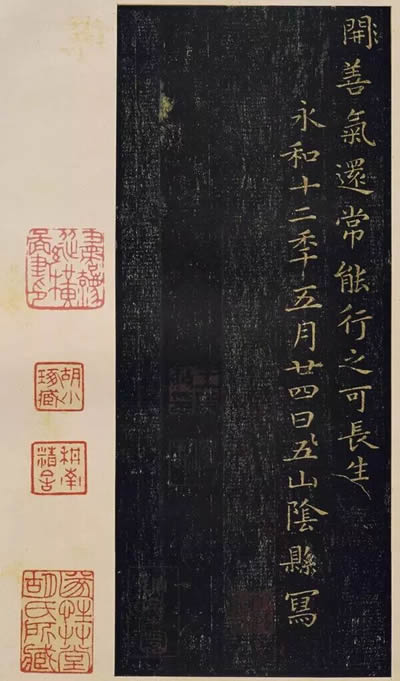 開善氣還常能行之可長生
永和十二秊五月廿四日五山陰縣寫
胡小琢臧
胡氏所藏